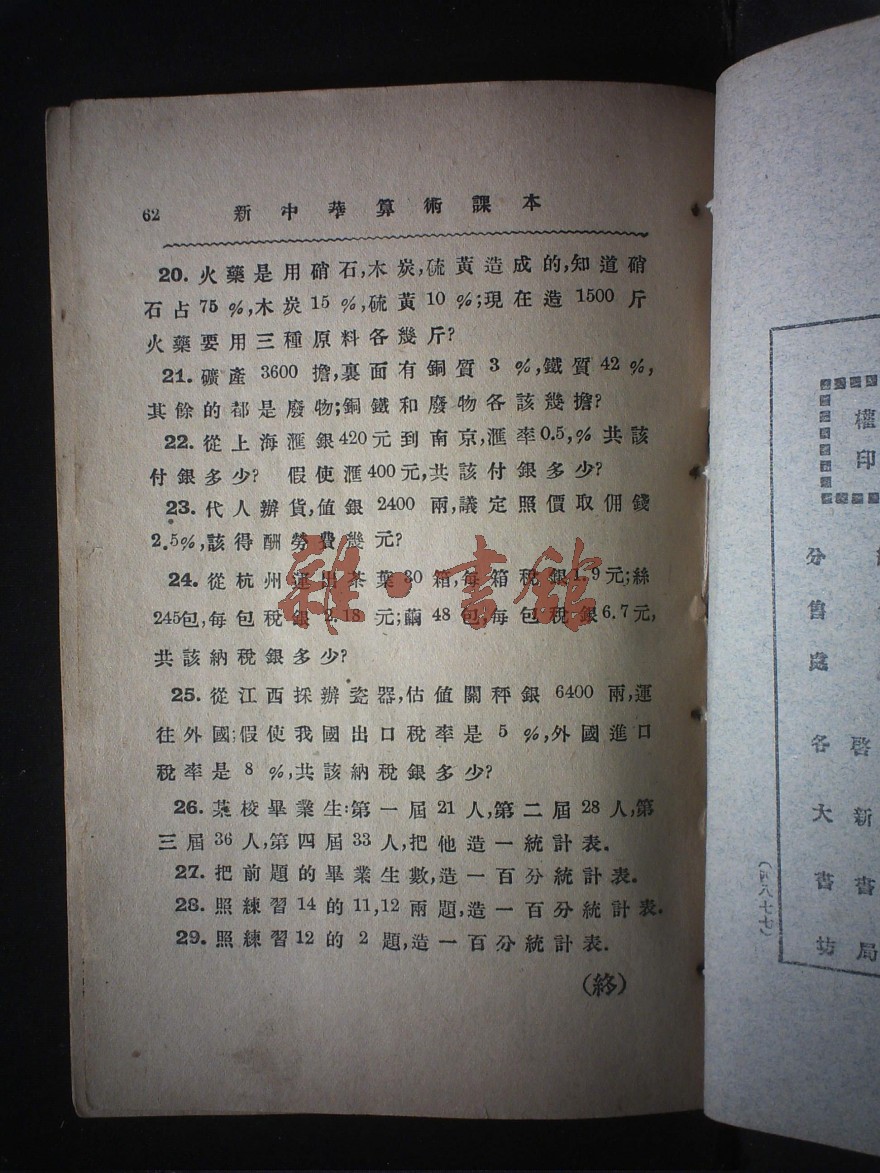 62 新中華算術課本
20. 火藥是用硝石,木炭,硫黃造成的,知道硝
石占75%,木炭15%,硫黃10%;現在造1500斤
火藥要用三種原料各幾斤?
21. 礦產3600擔,裏面有銅質3%,鐵質42%,
其餘的都是廢物;銅鐵和廢物各該幾擔?
22. 從上海滙銀420元到南京,滙率0.5,%共該
付銀多少? 假使滙400元,共該付銀多少?
23. 代人辦貨,値銀2400兩,議定照價取佣錢
2.5%,該得酬勞費幾元?
24. 從杭州運出茶葉80箱,每箱稅銀1.9元;絲
245包,每包稅銀2.18元;繭48包,每包稅銀6.7元,
共該納稅銀多少?
25. 從江西採辦瓷器,估値關秤銀6400兩,運
往外國;假使我國出口稅率是5%,外國進口
稅率是8%,共該納稅銀多少?
26. 某校畢業生:第一屆21人,第二屆28人,第
三屆36人,第四屆33人,把他造一統計表.
27. 把前題的畢業生數,造一百分統計表.
28. 照練習14的11,12兩題,造一百分統計表.
29. 照練習12的2題,造一百分統計表.
(終)
雜·書館
權
印
分售處各大書坊
啓新書局
(四八七七)